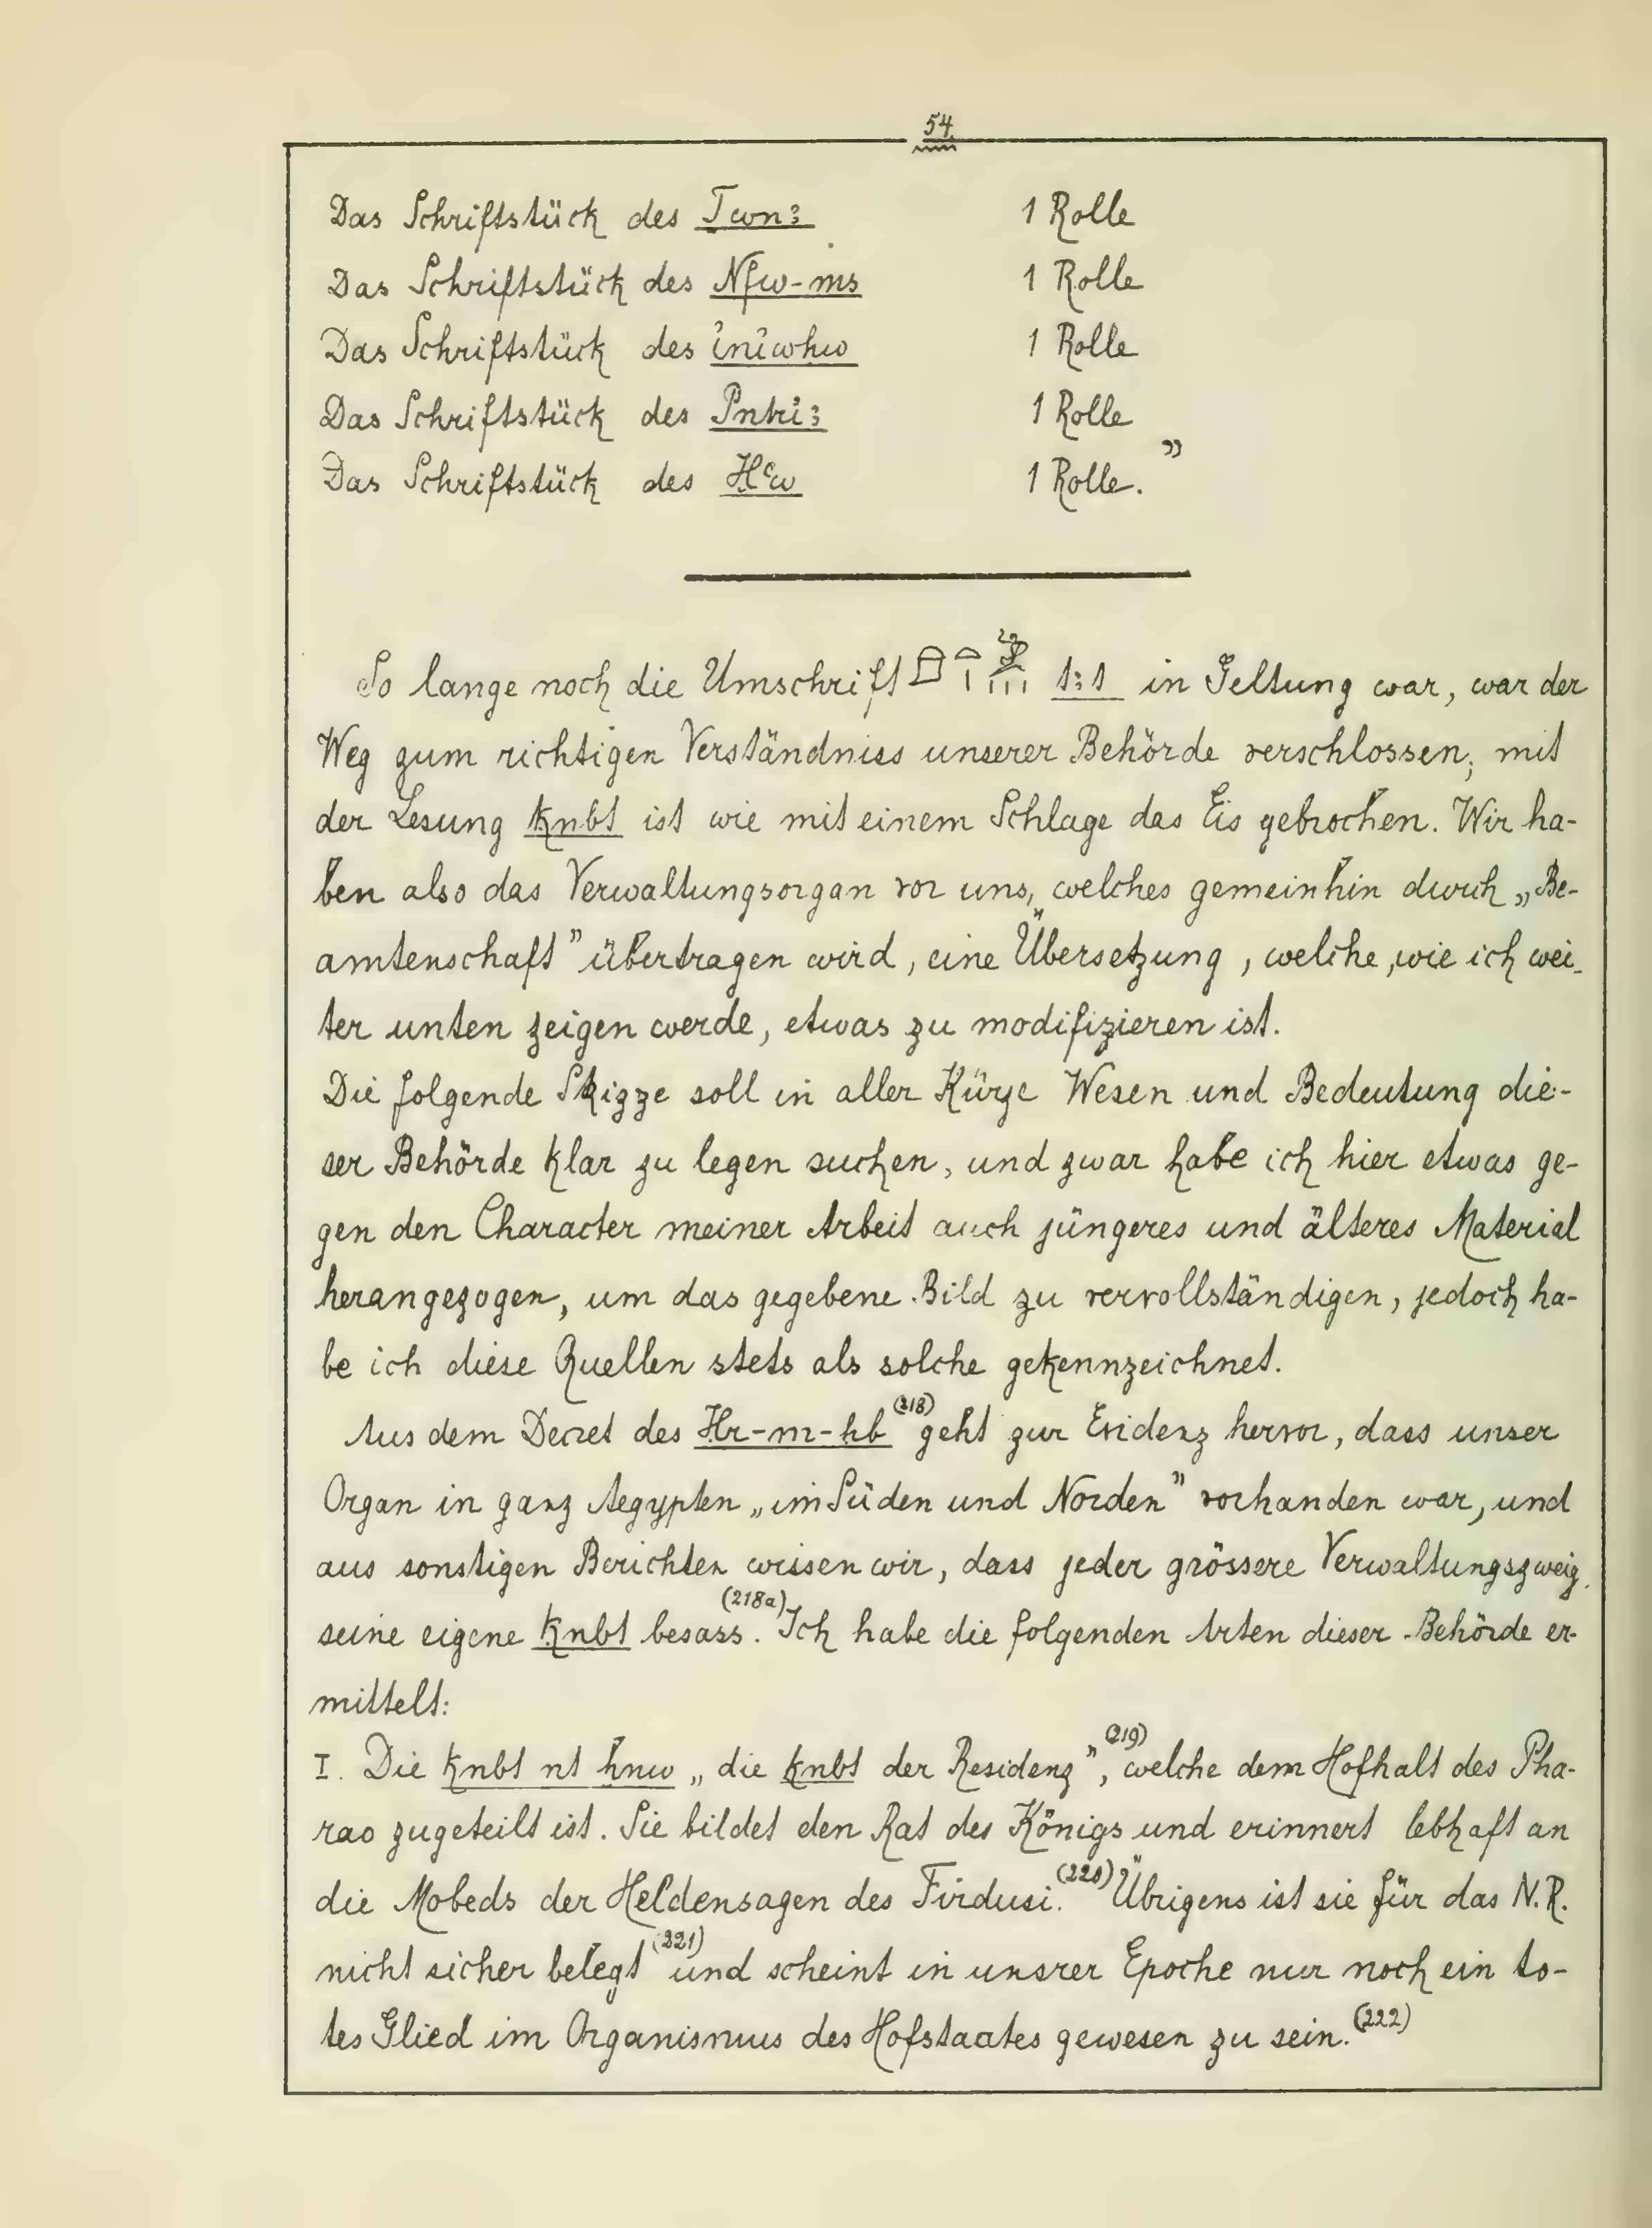 54.
Das Schriftstück des Ṯwnꜣ 1 Rolle
Das Schriftstück des Nfw-ms 1 Rolle
Das Schriftstück des i҆ni҆whw 1 Rolle
Das Schriftstück des Pntri҆ꜣ 1 Rolle
Das Schriftstück des Ḥꜥw 1 Rolle.”
So lange noch die Umschrift tꜣt in Geltung war, war der
Weg zum richtigen Verständniss unserer Behörde verschlossen; mit
der Lesung ḳnbt ist wie mit einem Schlage das Eis gebrochen. Wir ha-
ben also das Verwaltungsorgan vor uns, welches gemeinhin durch „Be-
amtenschaft” übertragen wird, eine Übersetzung, welche, wie ich wei-
ter unten zeigen werde, etwas zu modifizieren ist.
Die folgende Skizze soll in aller Kürze Wesen und Bedeutung die-
ser Behörde klar zu legen suchen, und zwar habe ich hier etwas ge-
gen den Character meiner Arbeit auch jüngeres und älteres Material
herangezogen, um das gegebene Bild zu vervollständigen, jedoch ha-
be ich diese Quellen stets als solche gekennzeichnet.
Aus dem Decret des Ḥr-m-ḥb (218) geht zur Evidenz hervor, dass unser
Organ in ganz Aegypten „im Süden und Norden” vorhanden war, und
aus sonstigen Berichten wissen wir, dass jeder grössere Verwaltungszweig
seine eigene ḳnbt besass. (218a) Ich habe die folgenden Arten dieser Behörde er-
mittelt:
I. Die ḳnbt nt ẖnw „die ḳnbt der Residenz”, (219) welche dem Hofhalt des Pha-
rao zugeteilt ist. Sie bildet den Rat des Königs und erinnert lebhaft an
die Mobeds der Heldensagen des Firdusi. (220) Übrigens ist sie für das N.R.
nicht sicher belegt (221) und scheint in unsrer Epoche nur noch ein to-
tes Glied im Organismus des Hofstaates gewesen zu sein. (222)